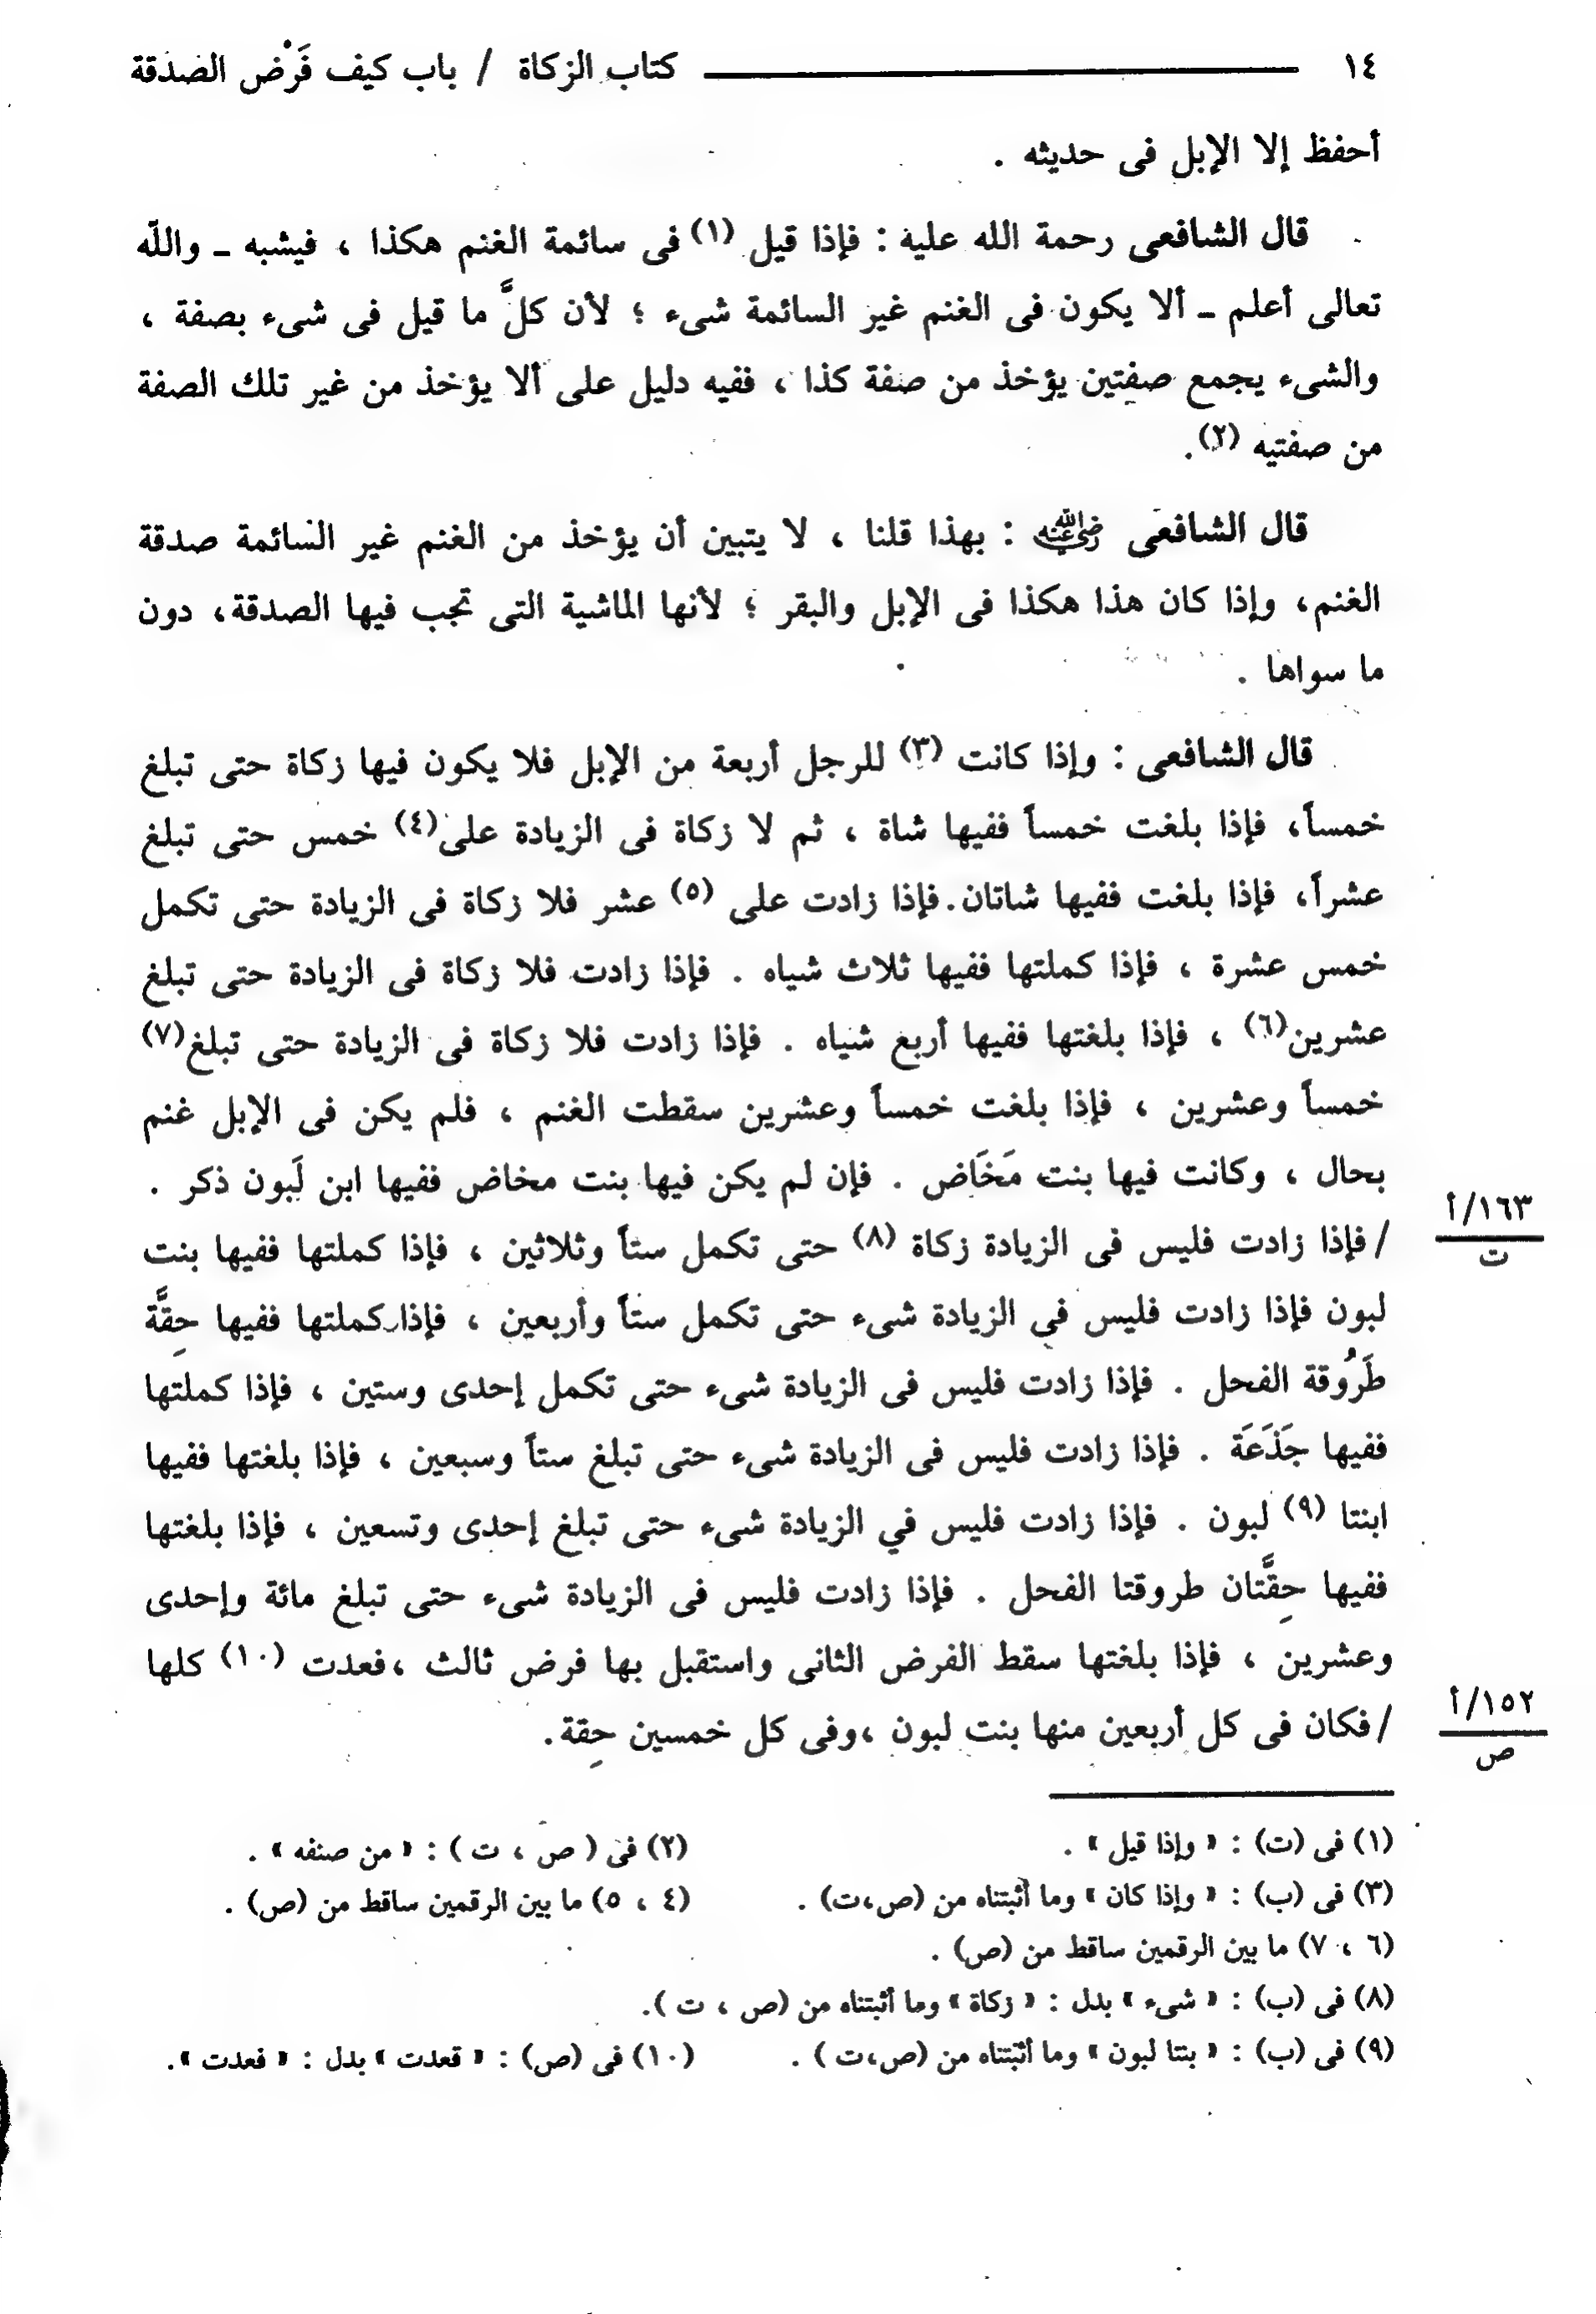 ١٤ كتاب الزكاة / باب كيف فَرْض الصدقة
أحفظ إلا الإبل فى حديثه .
قال الشافعى رحمة الله عليه : فإذا قيل (١) فى سائمة الغنم هكذا ، فيشبه ـ والله
تعالى أعلم ـ ألا يكون فى الغنم غير السائمة شىء ؛ لأن كلَّ ما قيل فى شىء بصفة ،
والشىء يجمع صفتين يؤخذ من صفة كذا ، ففيه دليل على ألا يؤخذ من غير تلك الصفة
من صفتيه (٢).
قال الشافعى رضي الله عنه : بهذا قلنا ، لا يتبين أن يؤخذ من الغنم غير السائمة صدقة
الغنم، وإذا كان هذا هكذا فى الإبل والبقر ؛ لأنها الماشية التى تجب فيها الصدقة، دون
ما سواها .
قال الشافعى : وإذا كانت (٣) للرجل أربعة من الإبل فلا يكون فيها زكاة حتى تبلغ
خمساً، فإذا بلغت خمساً ففيها شاة ، ثم لا زكاة فى الزيادة على(٤) خمس حتى تبلغ
عشراً، فإذا بلغت ففيها شاتان.فإذا زادت على (٥) عشر فلا زكاة فى الزيادة حتى تكمل
خمس عشرة ، فإذا كملتها ففيها ثلاث شياه . فإذا زادت فلا زكاة فى الزيادة حتى تبلغ
عشرين(٦) ، فإذا بلغتها ففيها أربع شياه . فإذا زادت فلا زكاة فى الزيادة حتى تبلغ(٧)
خمساً وعشرين ، فإذا بلغت خمساً وعشرين سقطت الغنم ، فلم يكن فى الإبل غنم
بحال ، وكانت فيها بنت مَخَاض . فإن لم يكن فيها بنت مخاض ففيها ابن لَبون ذكر .
/ فإذا زادت فليس فى الزيادة زكاة (٨) حتى تكمل ستاً وثلاثين ، فإذا كملتها ففيها بنت
١٦٣/أ
ت
لبون فإذا زادت فليس في الزيادة شىء حتى تكمل ستاً وأربعين ، فإذا كملتها ففيها حِقَّة
طَرُوقة الفحل . فإذا زادت فليس فى الزيادة شىء حتى تكمل إحدى وستين ، فإذا كملتها
ففيها جَذَعَة . فإذا زادت فليس فى الزيادة شىء حتى تبلغ ستاً وسبعين ، فإذا بلغتها ففيها
ابنتا (٩) لبون . فإذا زادت فليس في الزيادة شىء حتى تبلغ إحدى وتسعين ، فإذا بلغتها
ففيها حِقَّتان طروقتا الفحل . فإذا زادت فليس فى الزيادة شىء حتى تبلغ مائة وإحدى
وعشرين ، فإذا بلغتها سقط الفرض الثانى واستقبل بها فرض ثالث ،فعدت (١٠) كلها
/ فكان فى كل أربعين منها بنت لبون ،وفى كل خمسين حِقة.
١٥٢/أ
ص
(١) فى (ت) : « وإذا قيل » . (٢) فى ( ص ، ت ) : « من صنفه » .
(٣) فى (ب) : « وإذا كان » وما أثبتناه من (ص،ت) . (٤ ، ٥) ما بين الرقمين ساقط من (ص) .
(٦ ، ٧) ما بين الرقمين ساقط من (ص) .
(٨) فى (ب) : « شىء » بدل : « زكاة » وما أثبتناه من (ص ، ت ).
(٩) فى (ب) : « بنتا لبون » وما أثبتناه من (ص،ت ) . (١٠) فى (ص) : « قعدت » بدل : « فعدت ».